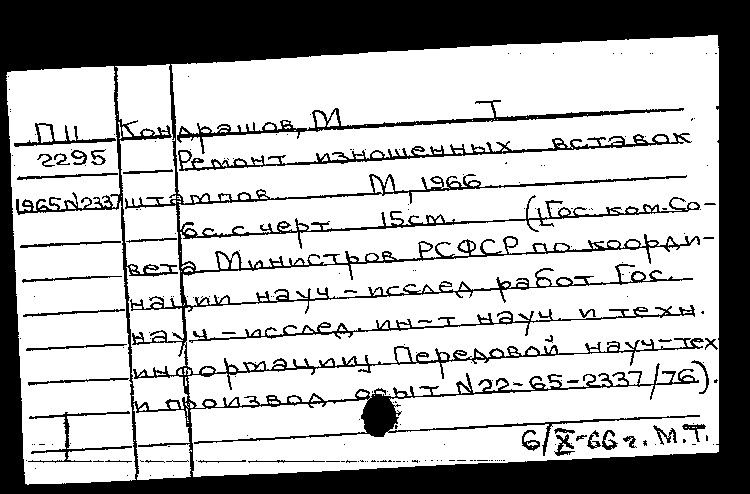 П11 Кондрашов, М Т
2295 Ремонт изношенных вставок
1965N2337 штампов М, 1966
6с. с черт 15см. ([Гос. ком. Со-
вета Министров РСФСР по коорди-
нации науч-исслед. работ Гос.
науч-исслед. ин-т науч. и техн.
информации]. Передовой науч-тех
и производ. опыт N22-65-2337/76).
6/X-66 г. М.Т.